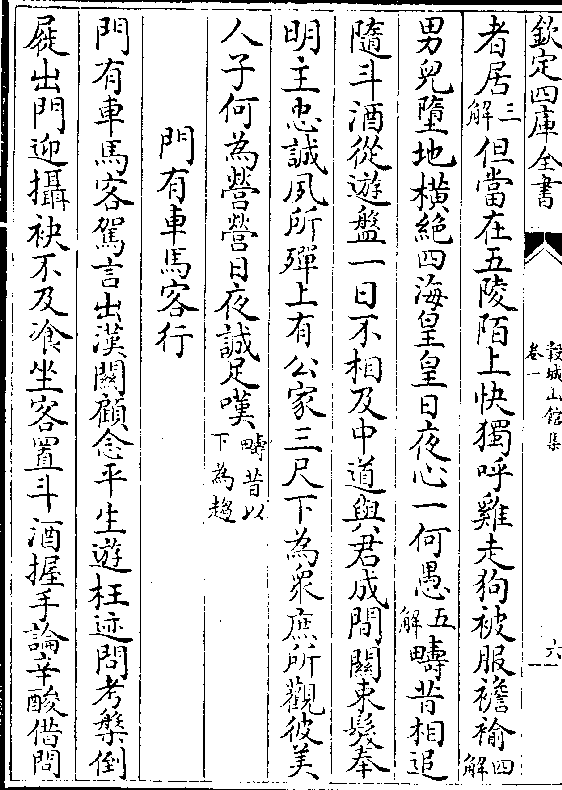 欽定四庫全書
穀城山館集
卷一
六
者居三解但當在五陵陌上快獨呼雞走狗被服襜褕四解
男兒墮地橫絶四海皇皇日夜心一何愚五解疇昔相追
隨斗酒從遊盤一日不相及中道與君成間關束髮奉
明主忠誠夙所殫上有公家三尺下為衆庶所觀彼美
人子何為營營日夜誠足嘆疇昔以下為趨
門有車馬客行
門有車馬客駕言出漢關顧念平生遊枉迹問考槃倒
屣出門迎攝袂不及飡坐客置斗酒握手論辛酸借問